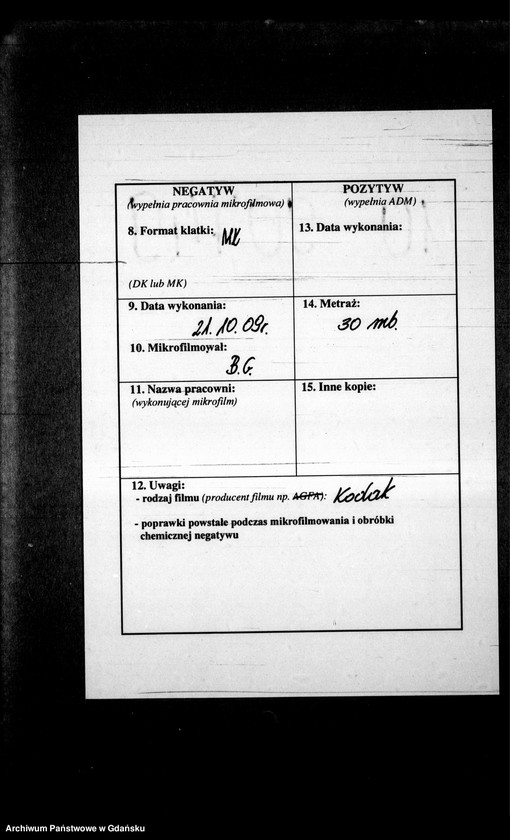 NEGATYW
(wypełnia pracownia mikrofilmowa)
8. Format klatki: MK
(DK lub MK)
9. Data wykonania:
21.10.09r.
10. Mikrofilmował:
B.G.
11. Nazwa pracowni:
(wykonującej mikrofilm)
POZYTYW
(wypełnia ADM)
13. Data wykonania:
14. Metraż:
30 mb.
15. Inne kopie:
12. Uwagi:
- rodzaj filmu (producent filmu np. AGFA): Kodak
- poprawki powstałe podczas mikrofilmowania i obróbki
chemicznej negatywu
Archiwum Państwowe w Gdańsku